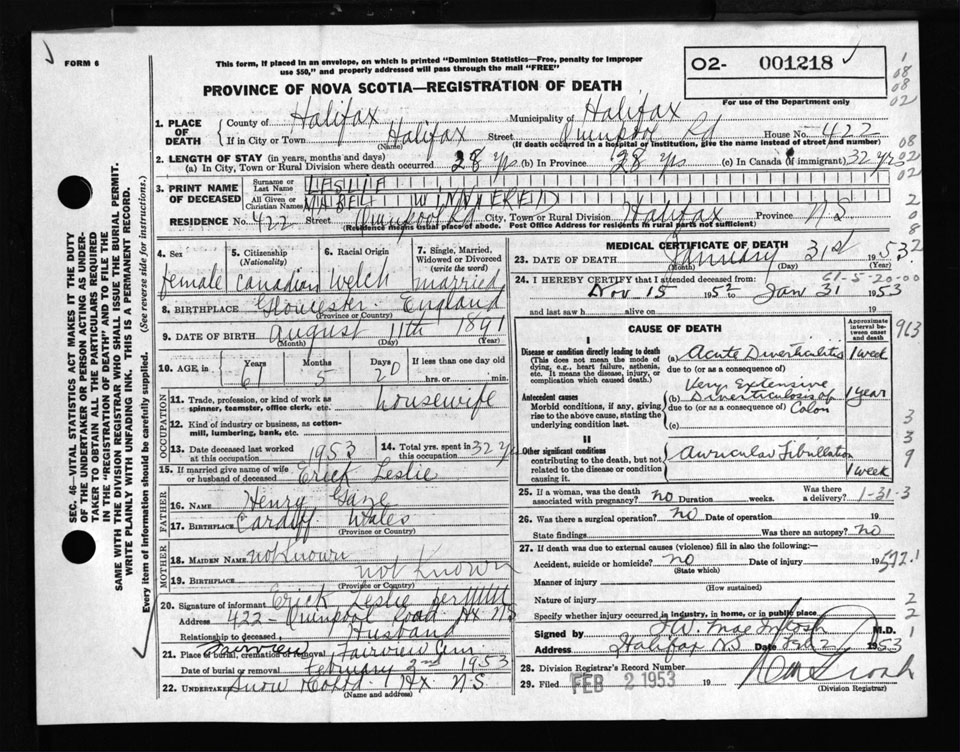 FORM 6
This form, if placed in an envelope, on which is printed "Dominion Statistics—Free, penalty for improper
use $50," and properly addressed will pass through the mail "FREE"
PROVINCE OF NOVA SCOTIA—REGISTRATION OF DEATH
O2- 001218
For use of the Department only
1. PLACE OF DEATH
County of Halifax Municipality of Halifax
If in City or Town Halifax Street Quinpool Rd House No. 422
(Name) (If death occurred in a hospital or institution, give the name instead of street and number)
2. LENGTH OF STAY (in years, months and days)
(a) In City, Town or Rural Division where death occurred 28 yrs (b) In Province 28 yrs (c) In Canada (if immigrant) 32 yrs
3. PRINT NAME OF DECEASED
Surname or Last Name LESLIE
All Given or Christian Names MABEL WINNIFRED
RESIDENCE No. 422 Street Quinpool Rd City, Town or Rural Division Halifax Province N S
(Residence means usual place of abode. Post Office Address for residents in rural parts not sufficient)
4. Sex female
5. Citizenship (Nationality) Canadian
6. Racial Origin Welch
7. Single, Married, Widowed or Divorced (write the word) married
8. BIRTHPLACE Gloucester England
(Province or Country)
9. DATE OF BIRTH August 11th 1891
(Month) (Day) (Year)
10. AGE, in Years 61 Months 5 Days 20 If less than one day old
hrs. or min.
OCCUPATION
11. Trade, profession, or kind of work as spinner, teamster, office clerk, etc. housewife
12. Kind of industry or business, as cotton-mill, lumbering, bank, etc.
13. Date deceased last worked at this occupation 1953
14. Total yrs. spent in this occupation 32 yrs
15. If married give name of wife or husband of deceased Erick Leslie
FATHER
16. NAME Henry Gaze
17. BIRTHPLACE Cardiff Wales
(Province or Country)
MOTHER
18. MAIDEN NAME not known
19. BIRTHPLACE not known
(Province or Country)
20. Signature of informant Erick Leslie per
Address 422 - Quinpool Road Hx NS
Relationship to deceased Husband
21. Place of burial, cremation or removal Fairview Fairview Cem
Date of burial or removal February 2nd 1953
22. UNDERTAKER Snow Hx. N.S.
(Name and address)
MEDICAL CERTIFICATE OF DEATH
23. DATE OF DEATH January 31st 1953
(Month) (Day) (Year)
24. I HEREBY CERTIFY that I attended deceased from: 61-5-20-00
Nov 15 1952 to Jan 31 1953
and last saw h alive on 19
CAUSE OF DEATH
Approximate interval between onset and death
I
Disease or condition directly leading to death (a) Acute Diverticulitis 1 week
(This does not mean the mode of dying, e.g., heart failure, asthenia, etc. It means the disease, injury, or complication which caused death.)
due to (or as a consequence of)
Antecedent causes
Morbid conditions, if any, giving rise to the above cause, stating the underlying condition last.
(b) Very Extensive Diverticulosis of Colon 1 year
due to (or as a consequence of)
(c)
II
Other significant conditions
contributing to the death, but not related to the disease or condition causing it.
Auricular Fibrillation 1 week
25. If a woman, was the death associated with pregnancy? no Duration weeks. Was there a delivery? 1-31-3
26. Was there a surgical operation? no Date of operation 19
State findings Was there an autopsy? no
27. If death was due to external causes (violence) fill in also the following:—
Accident, suicide or homicide? no Date of injury 19
(State which)
Manner of injury
(How sustained)
Nature of injury
Specify whether injury occurred in industry, in home, or in public place
Signed by Mac Intosh M.D.
Address Halifax NS Date Feb 2 1953
28. Division Registrar's Record Number
29. Filed FEB 2 1953 19
(Division Registrar)
SEC. 46—VITAL STATISTICS ACT MAKES IT THE DUTY
OF THE UNDERTAKER OR PERSON ACTING AS UNDER-
TAKER TO OBTAIN ALL THE PARTICULARS REQUIRED
IN THE "REGISTRATION OF DEATH" AND TO FILE THE
SAME WITH THE DIVISION REGISTRAR WHO SHALL ISSUE THE BURIAL PERMIT.
WRITE PLAINLY WITH UNFADING INK. THIS IS A PERMANENT RECORD.
Every item of information should be carefully supplied. (See reverse side for instructions.)
1
08
08
02
08
02
02
2
0
8
2
963
3
3
9
572.1
2
2
1